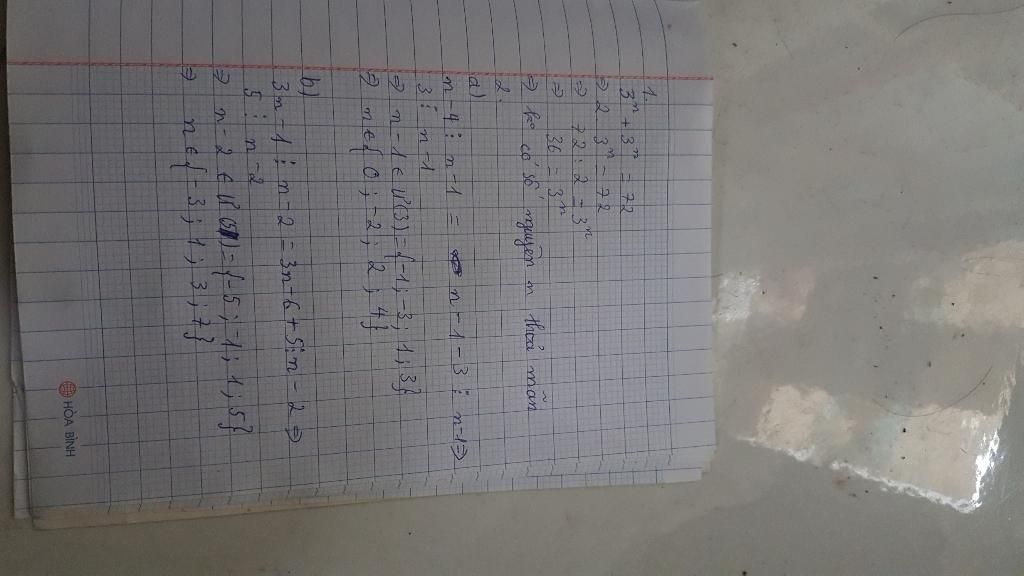 1.
3ⁿ + 3ⁿ = 72
⇒ 2 3ⁿ = 72
⇒ 72 : 2 = 3ⁿ
⇒ 36 = 3ⁿ
⇒ ko có số nguyên n thỏa mãn
2.
a)
n - 4 ⋮ n - 1 = n - 1 - 3 ⋮ n - 1 ⇒
3 ⋮ n - 1
⇒ n - 1 ∈ Ư(3) = {-1; -3; 1; 3}
⇒ n ∈ {0; -2; 2; 4}
b)
3n - 1 ⋮ n - 2 = 3n - 6 + 5 ⋮ n - 2 ⇒
5 ⋮ n - 2
⇒ n - 2 ∈ Ư(5) = {-5; -1; 1; 5}
⇒ n ∈ {-3; 1; 3; 7}
HÒA BÌNH